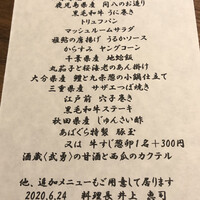 鹿児島県産 岡八のお造り
黒毛和牛 うに巻き
トリュフパン
マッシュルームサラダ
稚鮎の唐揚げ うるかソース
からすみ ヤングコーン
千葉県産 地蛤飯
丸茄子と桜海老のあん掛け
大分県産 鱧と九条葱の小鍋仕立て
三重県産 サザエつぼ焼き
江戸前 穴子巻き
黒毛和牛ステーキ
秋田県産 じゅんさい酢
あばぐら特製 豚玉
又は 牛すじ葱卵1名+300円
酒蔵《武勇》の甘酒と西瓜のカクテル
他、追加メニューもご用意して居ります
2020,6,24 料理長 井上 恵司